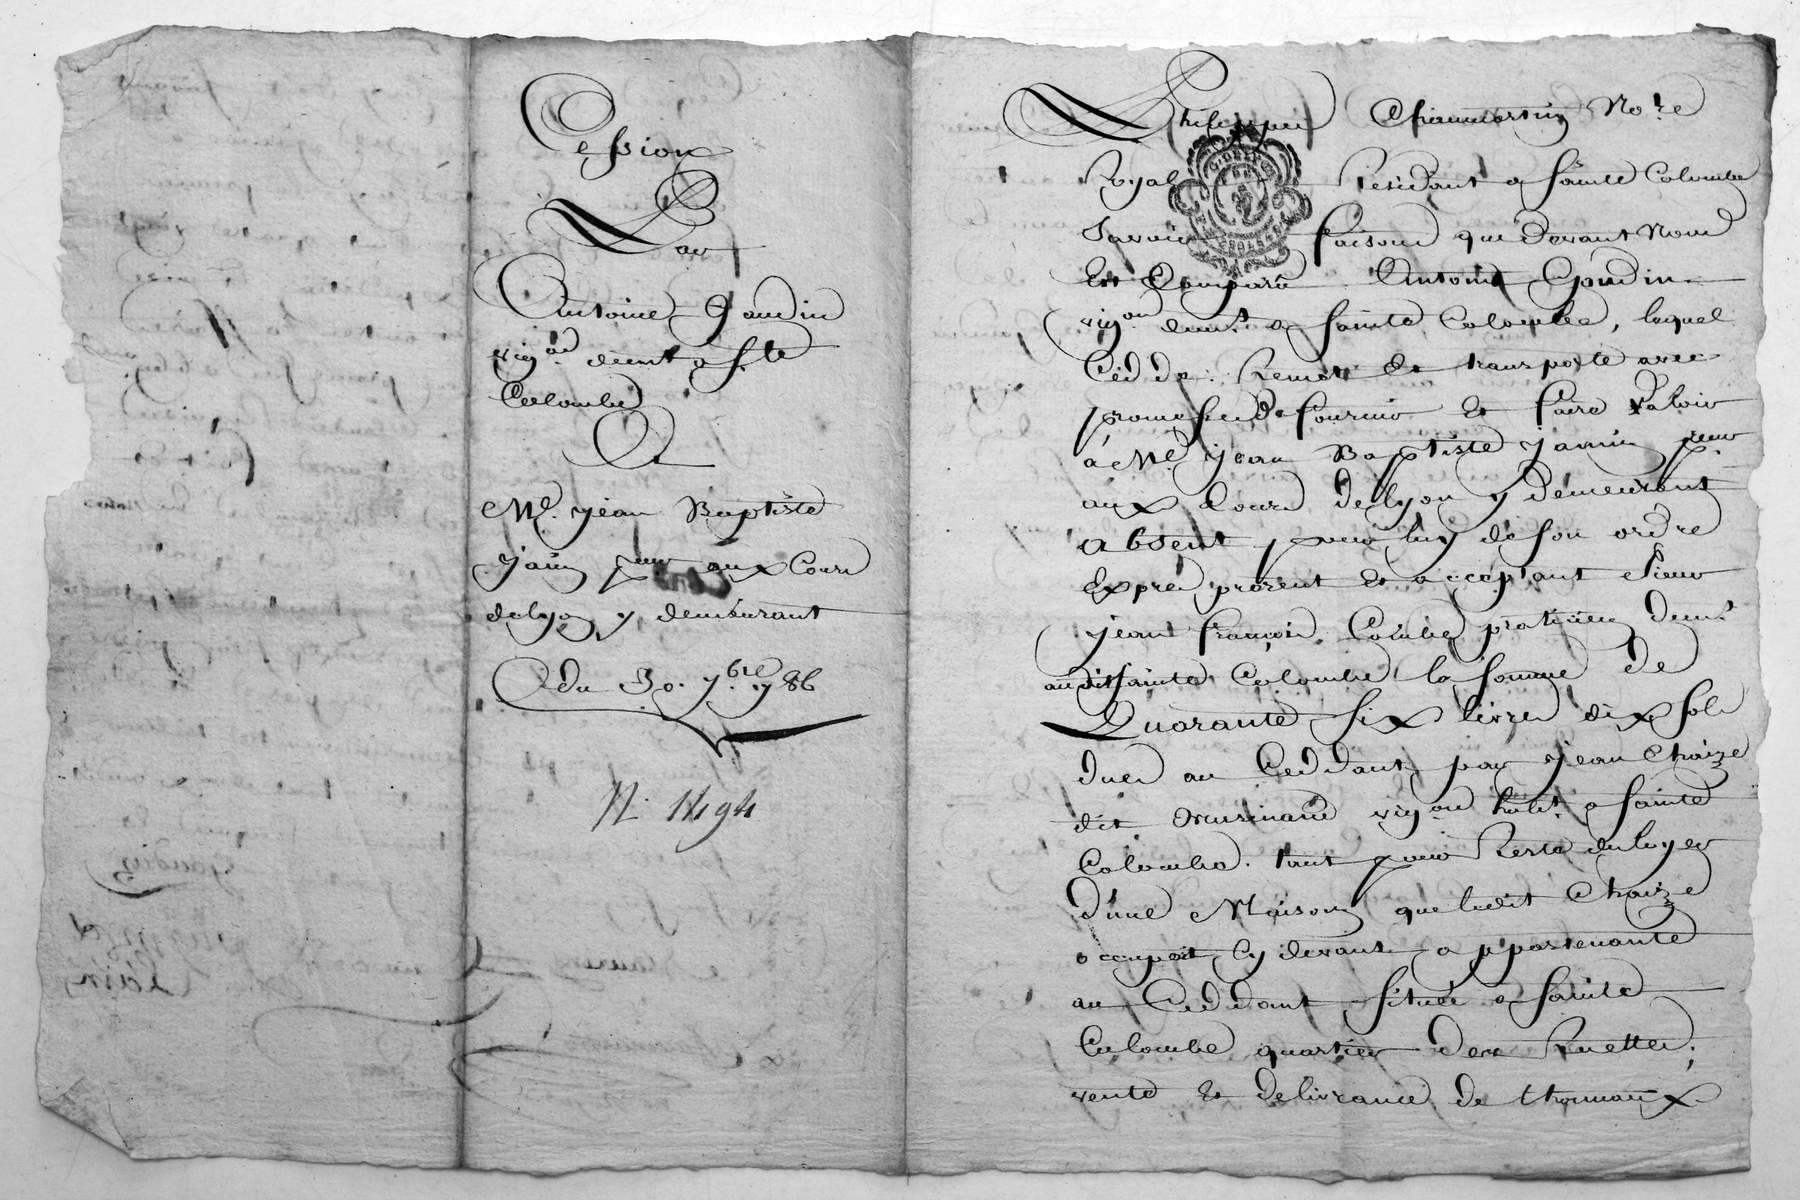 Cession
Par
Antoine Gaudin
vig.on demt a Ste
Colombe
A
Me. jean Baptiste
jamin pnur aux Cours
de lyon y demeurant
du 30. 7bre. 1786
N. 1494
Philippe Chaumartin No.re
Royal Résidant a sainte Colombe
faisons que devant Nous
Est Comparu Antoine Gaudin
vig.on demt. a sainte Colombe, lequel
Cedde. Remet et transporte avec
promesse de fournir Et faire valoir
à Me. jean Baptiste jamin pnur
aux Cours de lyon y demeurant
absent, pour luy de son ordre
Exprès présent et acceptant sieur
jean françois praticien demt.
audit sainte Colombe la somme de
Quarante six livres dix sols
dues au Ceddant, par jean Chaize
dit vig.on habt. a sainte
Colombe. tant pour Reste du loyer
d'une Maison que ledit Chaize
occupoit Cy devant appartenante
au Ceddant située a sainte
Colombe quartier des Ruettes,
vente et delivrance de thonnaux